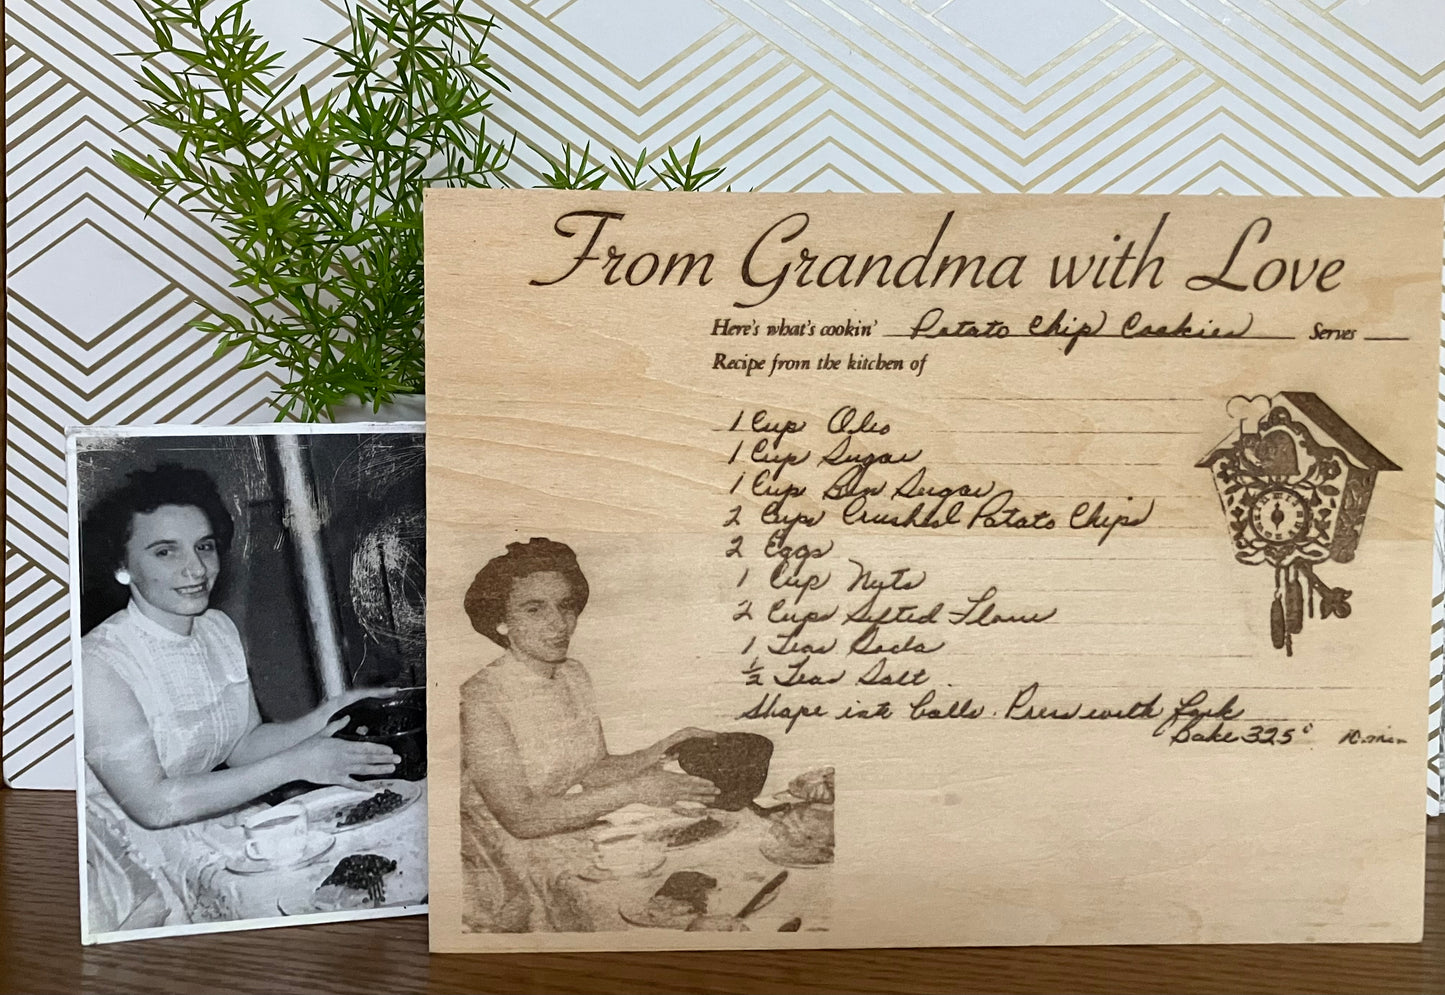 From Grandma with Love
Here's what's cookin' Potato Chip Cookies Serves
Recipe from the kitchen of
1 Cup Oleo
1 Cup Sugar
1 Cup Brn Sugar
2 Cups Crushed Potato Chips
2 Eggs
1 Cup Nuts
2 Cups Sifted Flour
1 Teas Soda
½ Teas Salt
Shape into balls. Press with fork
Bake 325° 10 min